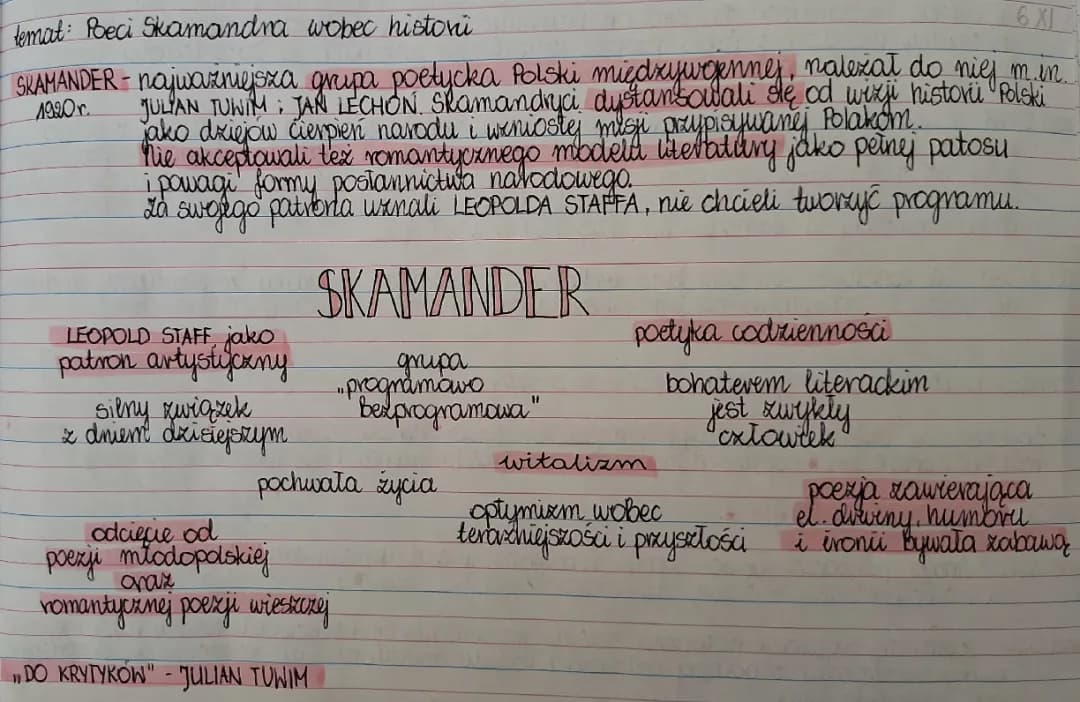 6 XI
temat: Poeci Skamandra wobec historii
SKAMANDER - najważniejsza grupa poetycka Polski międzywojennej, należał do niej m.in.
1920 r. JULIAN TUWIM i JAN LECHOŃ. Skamandryci dystansowali się od wizji historii Polski
jako dziejów cierpień narodu i wzniosłej misji przypisywanej Polakom.
Nie akceptowali też romantycznego modelu literatury jako pełnej patosu
i powagi formy posłannictwa narodowego.
Za swojego patrona uznali LEOPOLDA STAFFA, nie chcieli tworzyć programu.
SKAMANDER
LEOPOLD STAFF jako
patron artystyczny
grupa
„programowo
bezprogramowa"
poetyka codzienności
silny związek
z dniem dzisiejszym
bohaterem literackim
jest zwykły
człowiek
witalizm
pochwała życia
optymizm wobec
teraźniejszości i przyszłości
poezja zawierająca
el. drwiny, humoru
i ironii bywała zabawą
odcięcie od
poezji młodopolskiej
oraz
romantycznej poezji wieszczej
„DO KRYTYKÓW" - JULIAN TUWIM